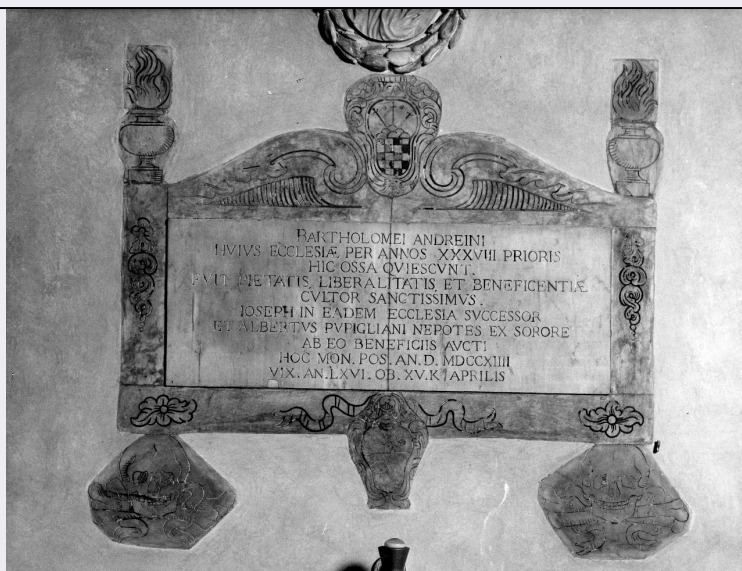 BARTHOLOMEI ANDREINI
HVIVS ECCLESIÆ PER ANNOS XXXVIII PRIORIS
HIC OSSA QVIESCVNT.
FVIT PIETATIS, LIBERALITATIS, ET BENEFICENTIÆ
CVLTOR SANCTISSIMVS.
IOSEPH IN EADEM ECCLESIA SVCCESSOR
ET ALBERTVS PVPIGLIANI NEPOTES EX SORORE
AB EO BENEFICIIS AVCTI
HOC MON. POS. AN. D. MDCCXIIII
VIX. AN. LXVI. OB. XV. K. APRILIS